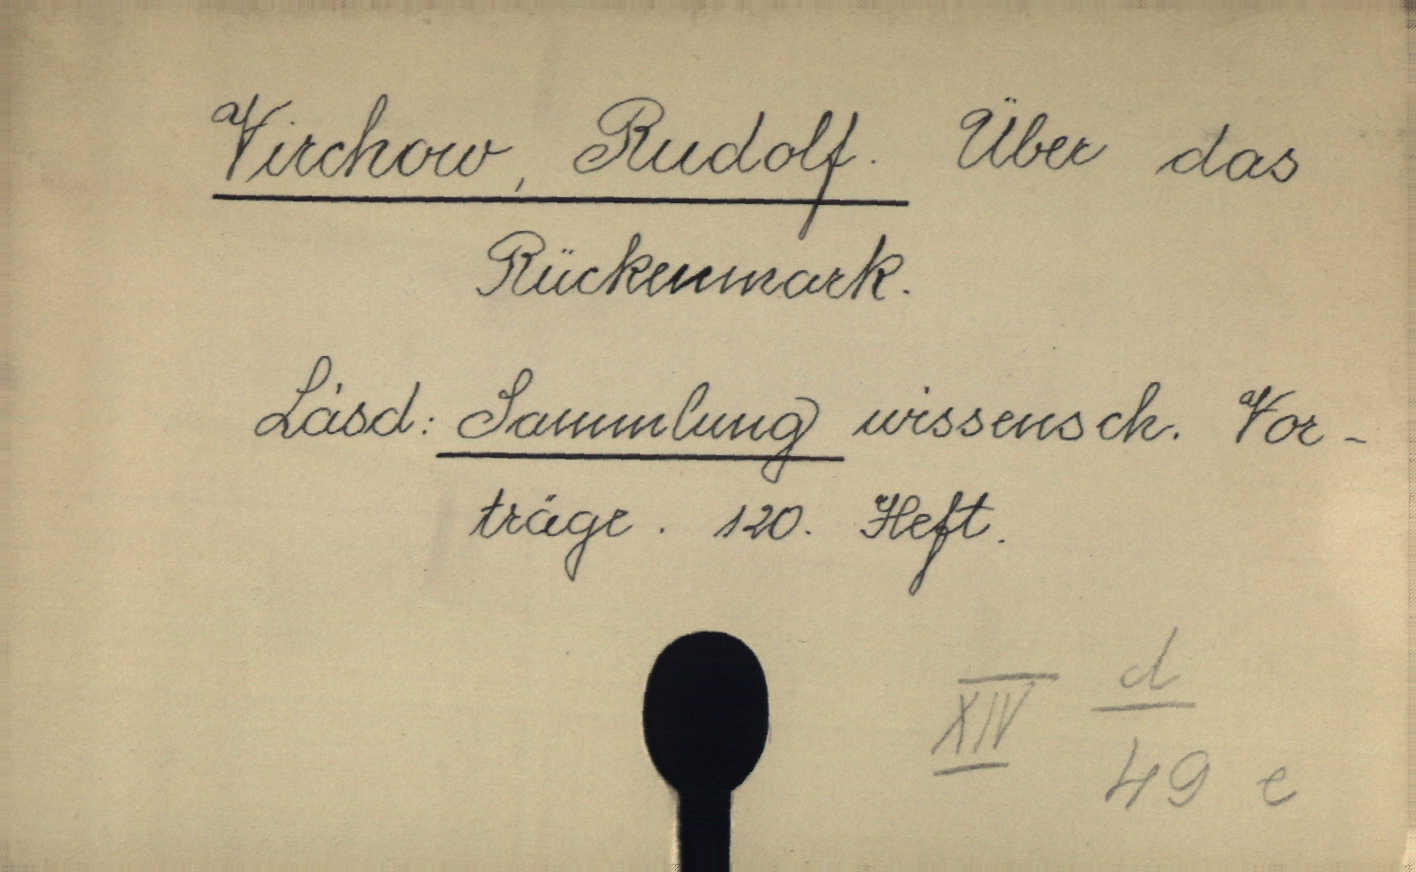 Virchow, Rudolf. Über das
Rückenmark.
Lásd: Sammlung wissensch. Vor-
träge. 120. Heft.
XIV d
49 e